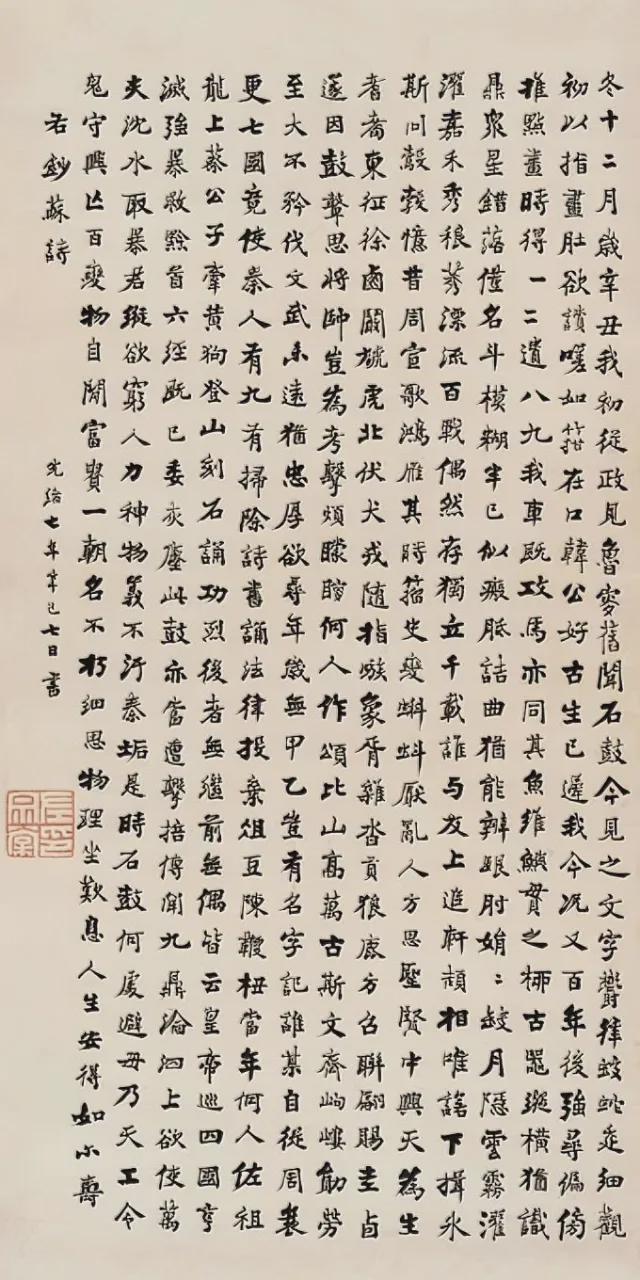 冬十二月歲辛丑我初從政見魯叟舊聞石鼓今見之文字鬱律蛟蛇走細觀
初以指畫肚欲讀嗟如箝在口韓公好古生已遲我今況又百年後強尋偏傍
推點畫時得一二遺八九我車既攻馬亦同其魚維鱮貫之柳古器縱橫猶識
鼎眾星錯落僅名斗模糊半已似瘢胝詰曲猶能辨跟肘娟〻缺月隱雲霧濯
濯嘉禾秀稂莠漂流百戰偶然存獨立千載誰与友上追軒頡相唯諾下揖冰
斯同鷇㝅憶昔周宣歌鴻雁其時籀史變蝌蚪厭亂人方思聖賢中興天為生
耆耇東征徐虜闞虓虎北伏犬戎隨指嗾象胥雜沓貢狼鹿方召聯翩賜圭卣
遂因鼓鼙思將帥豈為考擊煩矇瞍何人作頌比嵩高萬古斯文齊岣嶁勳勞
至大不矜伐文武未遠猶忠厚欲尋年歲無甲乙豈有名字記誰某自從周衰
更七國竟使秦人有九有掃除詩書誦法律投棄俎豆陳鞭杻當年何人佐祖
龍上蔡公子牽黃狗登山刻石誦功烈後者無繼前無偶皆云皇帝巡四國烹
滅強暴救黔首六經既已委灰塵此鼓亦當遭擊掊傳聞九鼎淪泗上欲使萬
夫沈水取暴君縱欲窮人力神物義不汙秦垢是時石鼓何處避毋乃天工令
鬼守興亡百變物自閒富貴一朝名不朽細思物理坐歎息人生安得如尔壽
右鈔蘇詩
光緒七年辛巳七日書